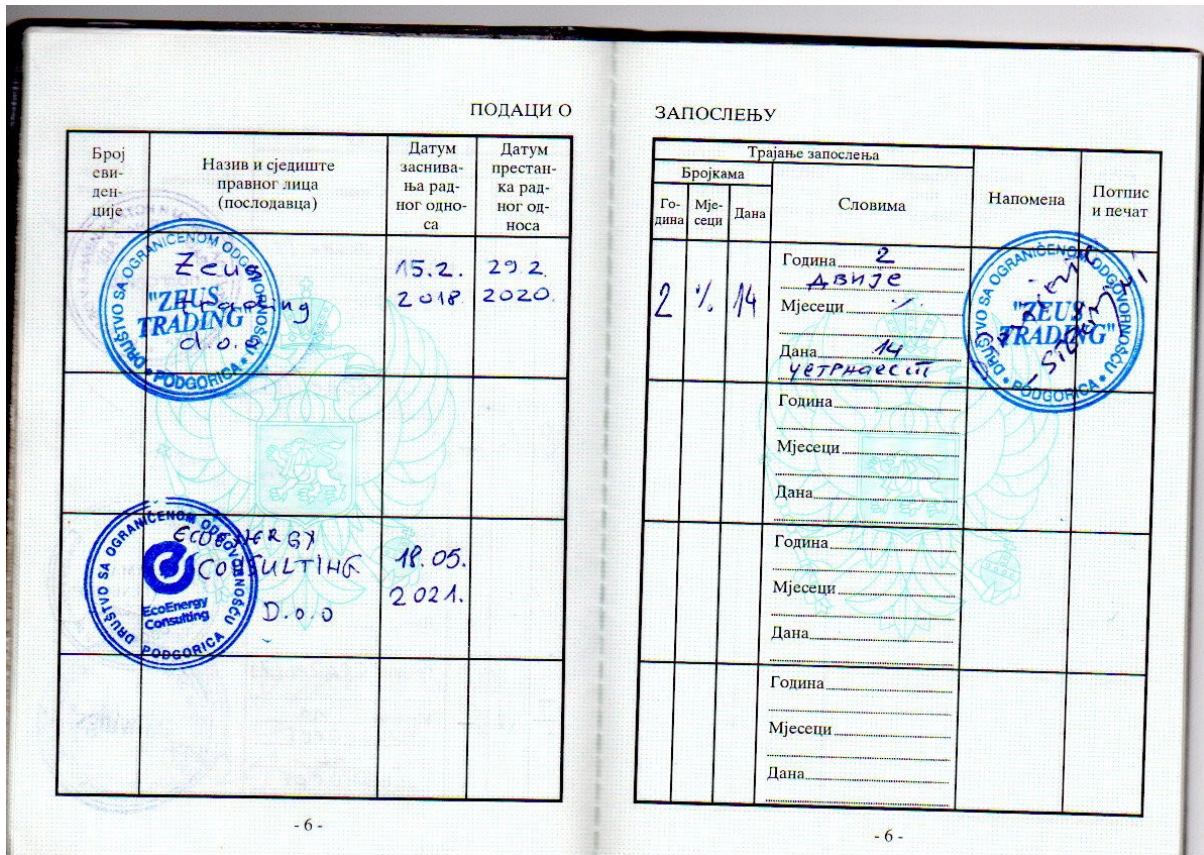 ПОДАЦИ О
Број
еви-
ден-
ције
Назив и сједиште
правног лица
(послодавца)
Датум
заснива-
ња рад-
ног одно-
са
Датум
престан-
ка рад-
ног од-
носа
Zeus
trading
d.o.o
DRUŠTVO SA OGRANIČENOM ODGOVORNOŠĆU
"ZEUS
TRADING"
PODGORICA
15.2.
2018
29.2.
2020.
ECOENERGY
CONSULTING
D.o.o
DRUŠTVO SA OGRANIČENOM ODGOVORNOŠĆU
EcoEnergy
Consulting
PODGORICA
18.05.
2021.
- 6 -
ЗАПОСЛЕЊУ
Трајање запослења
Бројкама
Го-
дина
Мје-
сеци
Дана
Словима
Напомена
Потпис
и печат
2 ٪ 14
Година 2
двије
Мјесеци ٪
Дана 14
четрнаест
DRUŠTVO SA OGRANIČENOM ODGOVORNOŠĆU
"ZEUS
TRADING"
PODGORICA
Година
Мјесеци
Дана
Година
Мјесеци
Дана
Година
Мјесеци
Дана
- 6 -